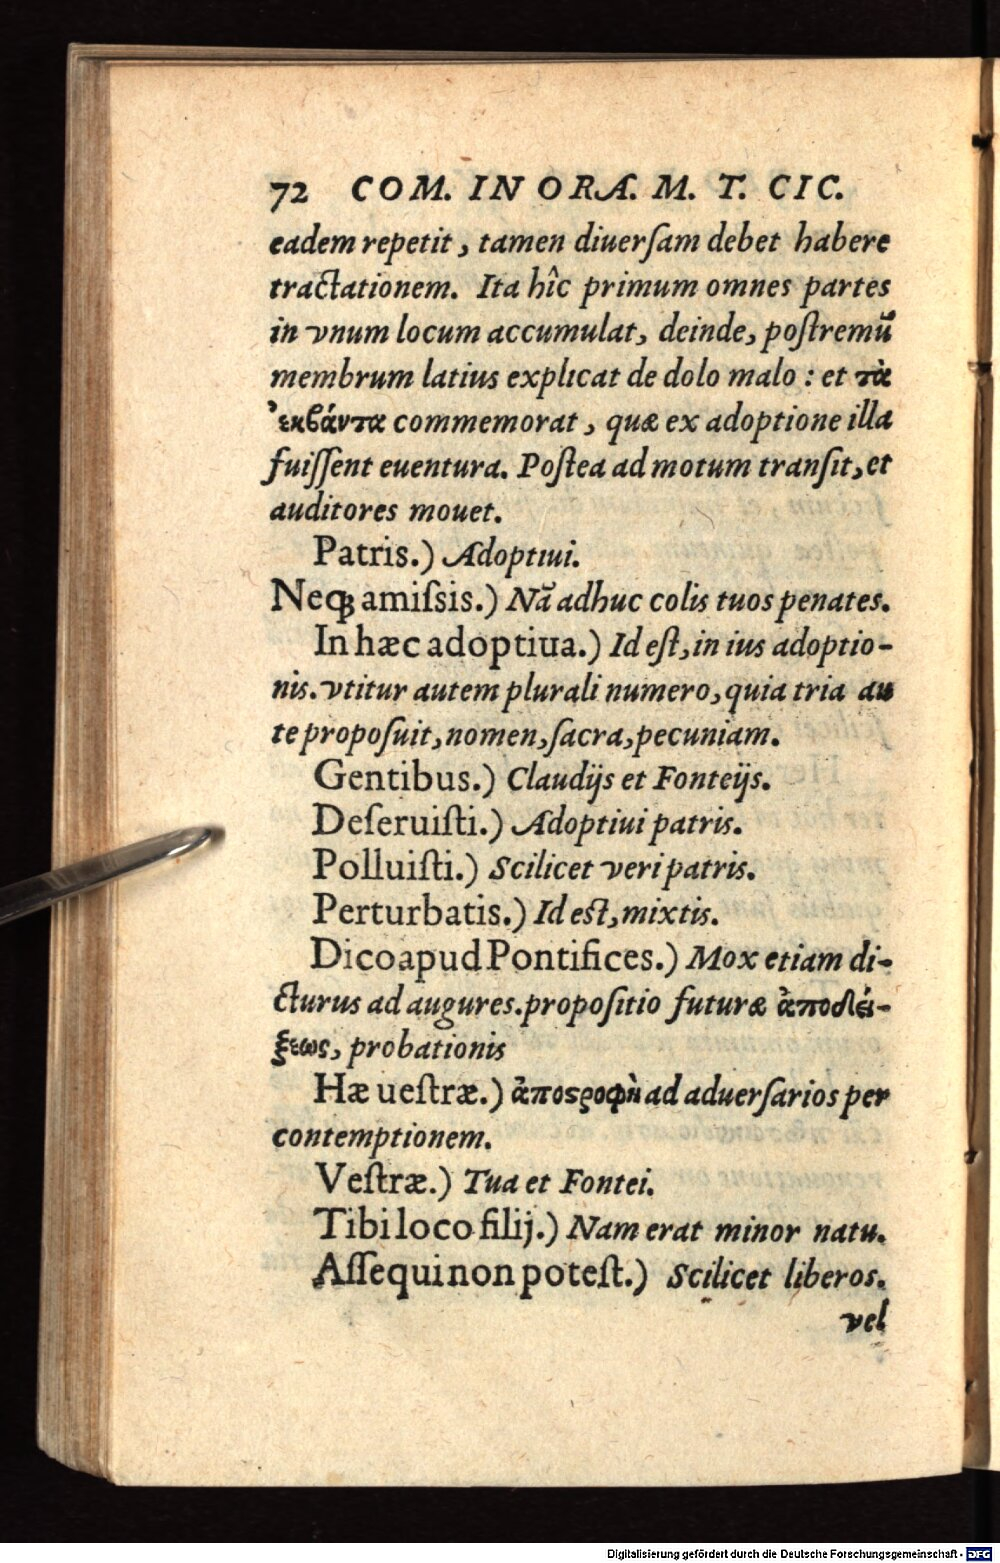 72 COM. IN ORA. M. T. CIC.
eadem repetit, tamen diuerſam debet habere
tractationem. Ita hîc primum omnes partes
in vnum locum accumulat, deinde, poſtremũ
membrum latius explicat de dolo malo : et τὰ
ἐκβάντα commemorat, quæ ex adoptione illa
fuiſſent euentura. Poſtea ad motum tranſit, et
auditores mouet.
Patris.) Adoptiui.
Neqꝫ amiſsis.) Nã adhuc colis tuos penates.
In hæc adoptiua.) Id eſt, in ius adoptio-
nis. vtitur autem plurali numero, quia tria an
te propoſuit, nomen, ſacra, pecuniam.
Gentibus.) Claudijs et Fonteijs.
Deſeruiſti.) Adoptiui patris.
Polluiſti.) Scilicet veri patris.
Perturbatis.) Id eſt, mixtis.
Dico apud Pontifices.) Mox etiam di-
cturus ad augures. propoſitio futuræ ἀποδεί-
ξεως, probationis
Hæ ueſtræ.) ἀποςροφὴ ad aduerſarios per
contemptionem.
Veſtræ.) Tua et Fontei.
Tibi loco filij.) Nam erat minor natu.
Aſſequi non poteſt.) Scilicet liberos.
vel
Digitalisierung gefördert durch die Deutsche Forschungsgemeinschaft - DFG